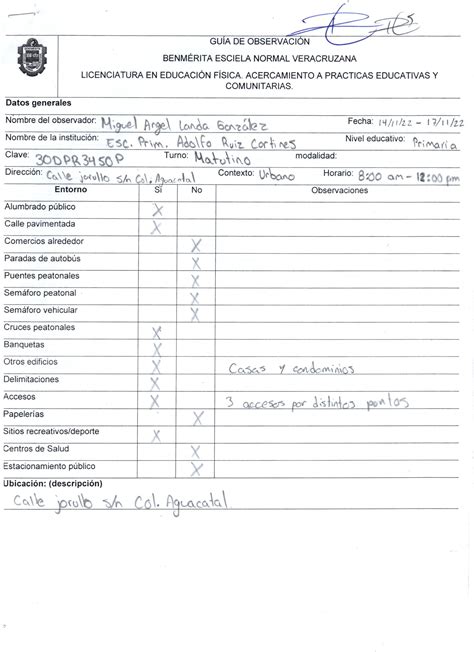 GUÍA DE OBSERVACIÓN
BENMÉRITA ESCIELA NORMAL VERACRUZANA
LICENCIATURA EN EDUCACIÓN FÍSICA. ACERCAMIENTO A PRACTICAS EDUCATIVAS Y
COMUNITARIAS.
Datos generales
Nombre del observador: Miguel Angel Landa González Fecha: 14/11/22 - 17/11/22
Nombre de la institución: Esc. Prim. Adolfo Ruiz Cortines Nivel educativo: Primaria
Clave: 30DPR3450P Turno: Matutino modalidad:
Dirección: Calle jorullo s/n Col. Aguacatal Contexto: Urbano Horario: 8:00 am - 12:00 pm
Entorno Sí No Observaciones
Alumbrado público X
Calle pavimentada X
Comercios alrededor X
Paradas de autobús X
Puentes peatonales X
Semáforo peatonal X
Semáforo vehicular X
Cruces peatonales X
Banquetas X
Otros edificios X Casas y condominios
Delimitaciones X
Accesos X 3 accesos por distintos puntos
Papelerías X
Sitios recreativos/deporte X
Centros de Salud X
Estacionamiento público X
Ubicación: (descripción)
Calle jorullo s/n Col. Aguacatal